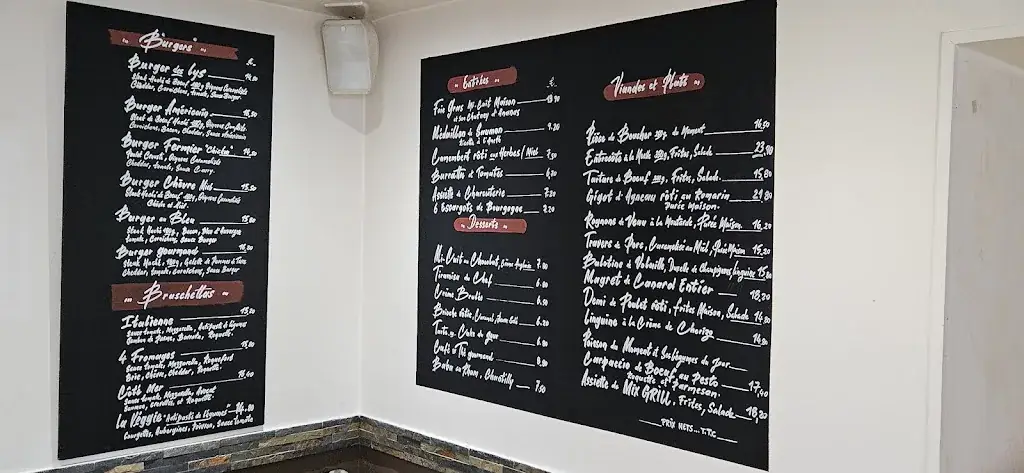 "Burgers"
€
Burger des Lys 14,50
Steak Haché de Boeuf 180g, Oignons Caramélisés
Cheddar, Cornichons, Tomate, Sauce Burger.
Burger Américain
Steak de Boeuf Haché 180g, Oignons
Cornichons, Bacon, Cheddar, Sauce
Burger Fermier "Chicken" 14,50
Poulet Crousti, Oignons Caramélisés
Cheddar, Tomate, Sauce Curry.
Burger Chèvre Miel 15,50
Steak Haché de Boeuf 180g, Oignons Caramélisés
Chèvre et Miel
Burger au Bleu 15,50
Steak Haché 180g, Bacon, Bleu d'Auvergne
Tomate, Cornichons, Sauce Burger
Burger gourmand 16,50
Steak Haché, 180g, Galette de Pommes de Terre
Cheddar, Tomate, Cornichons, Sauce Burger
Bruschettas
Italienne 15,80
Sauce Tomate, Mozzarella, Antipasti de Légumes
Jambon de Parme, Roquette.
4 Fromages 15,80
Sauce Tomate, Mozzarella, Roquefort
Brie, Chèvre, Cheddar, Roquette.
Côté Mer
Sauce Tomate, Mozzarella, Avocat
Saumon, Crevettes, et Roquette.
La Veggie "Antipasti de Légumes" 14,80
Courgettes, Aubergines, Poivron, Sauce Tomate
Entrées
€
Foie Gras Mi-Cuit Maison
et son Chutney d'Ananas
Médaillon de Saumon 9.20
Camembert rôti aux Herbes/Miel 7,90
Burratta et Tomates
Assiette de Charcuterie
6 Escargots de Bourgogne
Desserts
Mi-Cuit au Chocolat, Crème Anglaise
Tiramisu du Chef
Crème Brulée
Brioche Rôtie, Caramel,
Tarte ou Cake du Jour
Café ou Thé gourmand
Baba au Rhum, Chantilly 7,50
Viandes et Plats
Pièce de Boucher du Moment 16,50
Entrecôte à la Moelle Frites, Salade 23,90
Tartare de Boeuf Frites, Salade. 15,80
Gigot d'Agneau rôti au Romarin 21.80
Purée Maison.
Rognons de Veau à la Moutarde, Purée Maison. 16,20
Travers de Porc, Caramélisé au Miel, Purée Maison 15,20
Balotine de Volaille, Duxelle de Champignons, Linguine 15,80
Magret de Canard Entier 18,20
Demi de Poulet rôti, Frites Maison, Salade 14,80
Linguine à la Crème de Chorizo 14,90
Poisson du Moment et Ses légumes du jour
Carpaccio de Boeuf au Pesto 17,90
Roquette et Parmesan.
Assiette de MIX GRILL, Frites, Salade 18,20
PRIX NETS... T.T.C